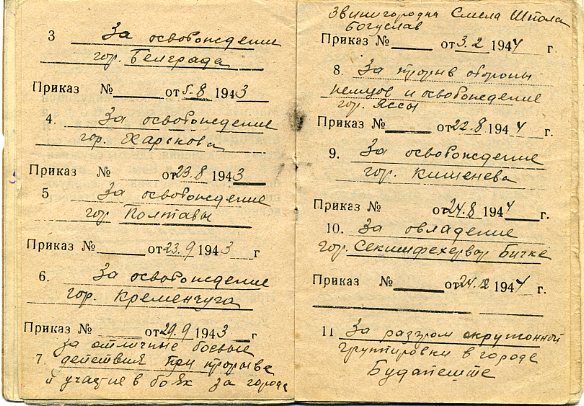 3 За освобождение
гор. Белграда
Приказ № от 5.8 1943
4. За освобождение
гор. Харькова
Приказ № от 23.8 1943
5 За освобождение
гор. Полтавы
Приказ № от 23.9 1943 г
6. За освобождение
гор. Кременчуга
Приказ № от 29.9 1943 г
7 за отличные боевые
действия при прорыве
и участие в боях за города
Звенигородка Смела Шпола
Богуслав
Приказ № от 3.2 1944 г.
8. За прорыв обороны
немцов и освобождение
гор. Яссы
Приказ № от 22.8 1944 г.
9. За освобождение
гор. Кишенева
Приказ № от 24.8 1944 г.
10. За овладение
гор. Секишфехервар Бичке
Приказ № от 24.12 1944 г.
11 За разгром окружонной
группировки в городе
Будапеште